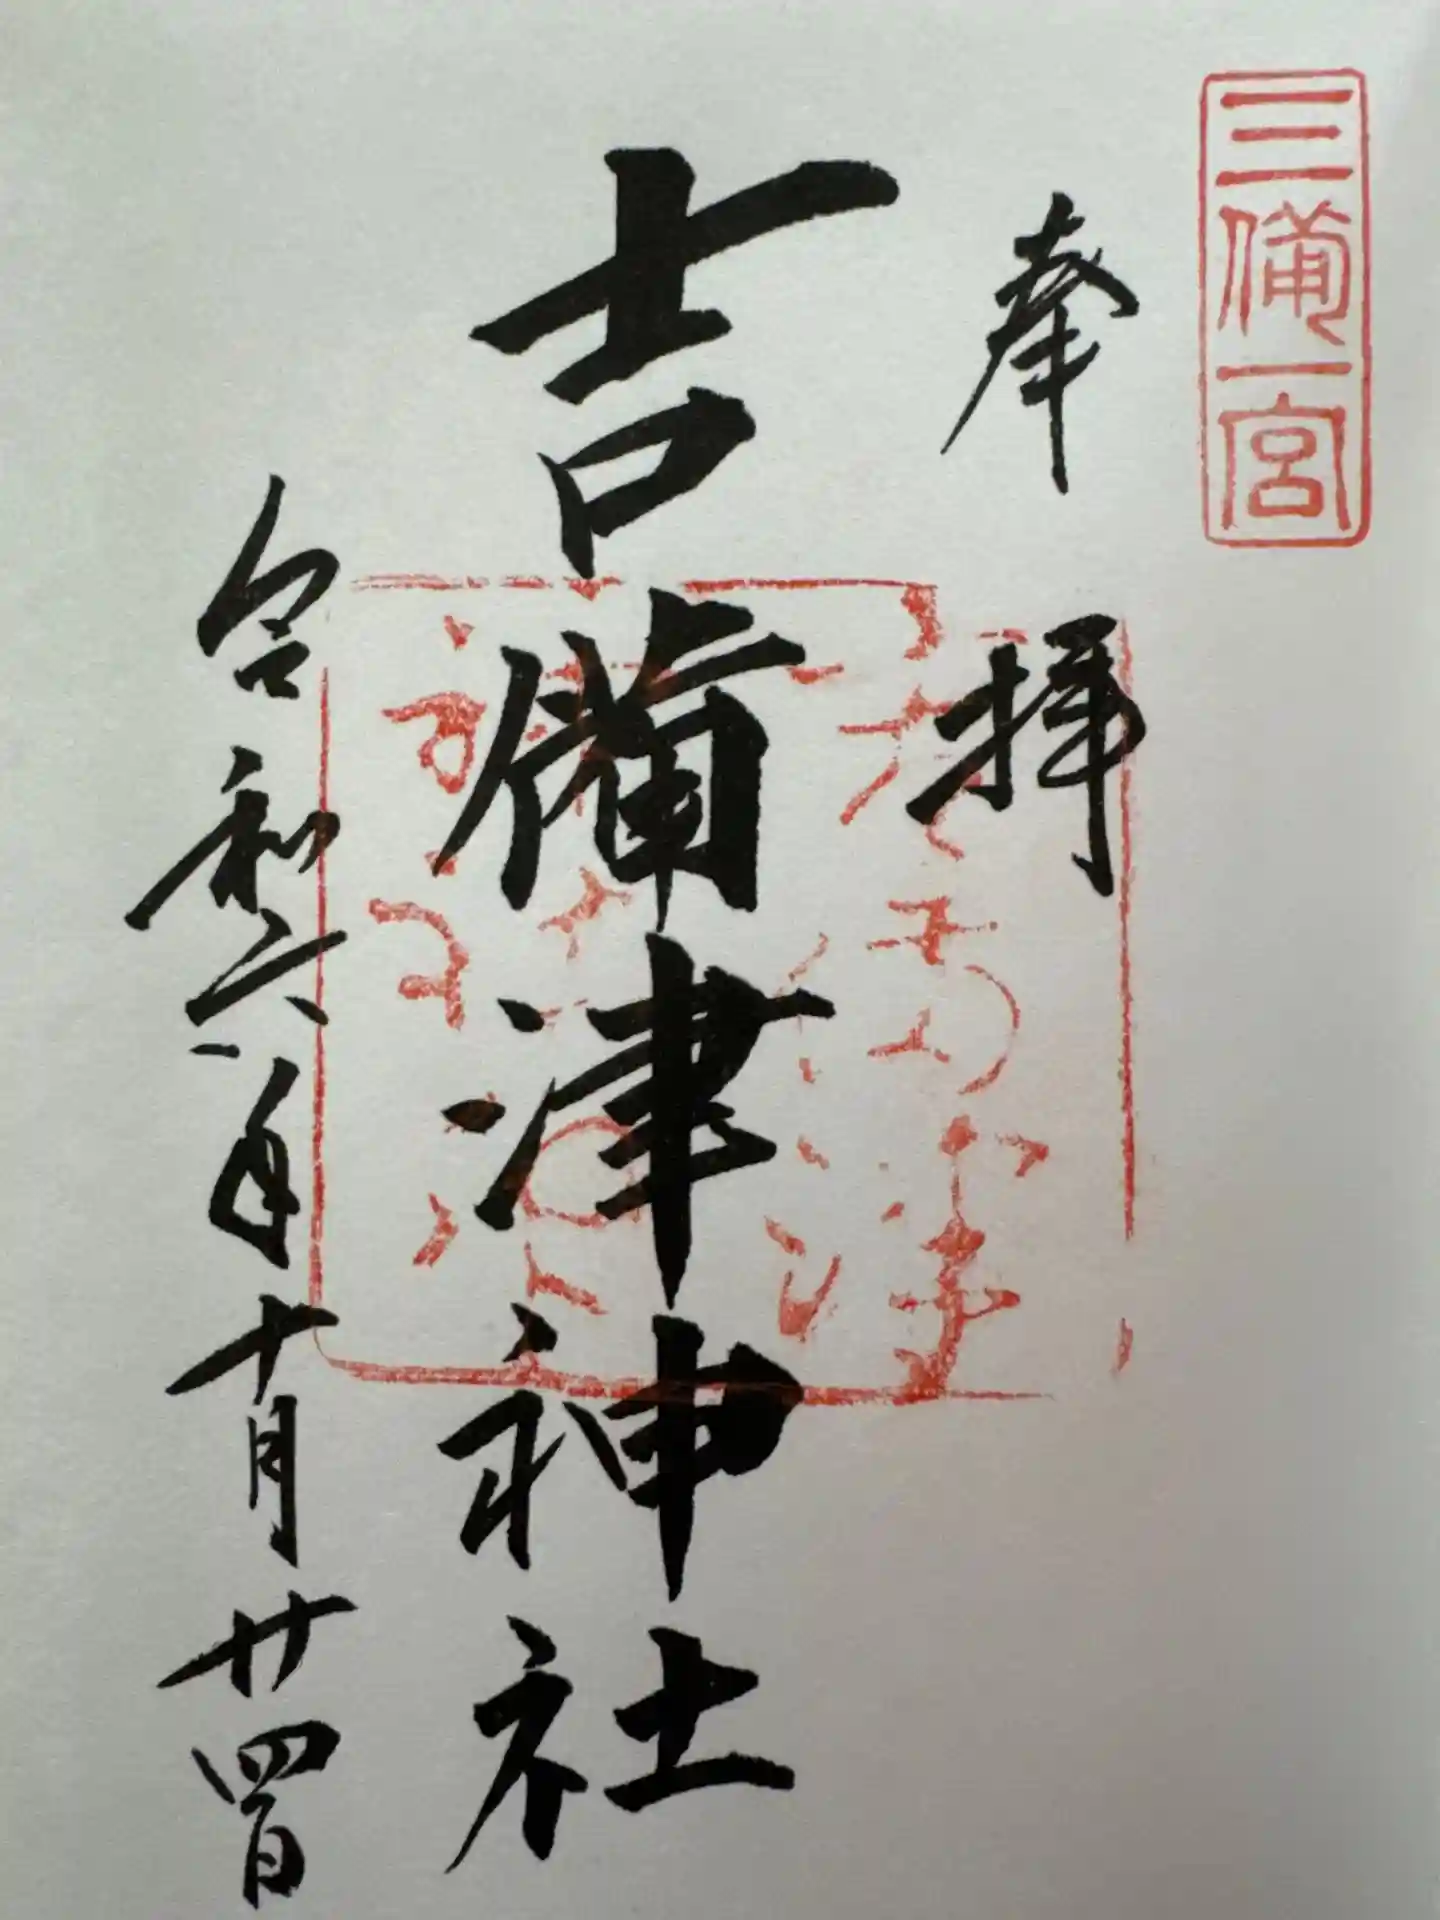 三備一宮
奉拝
吉備津神社
令和六年十月廿四日